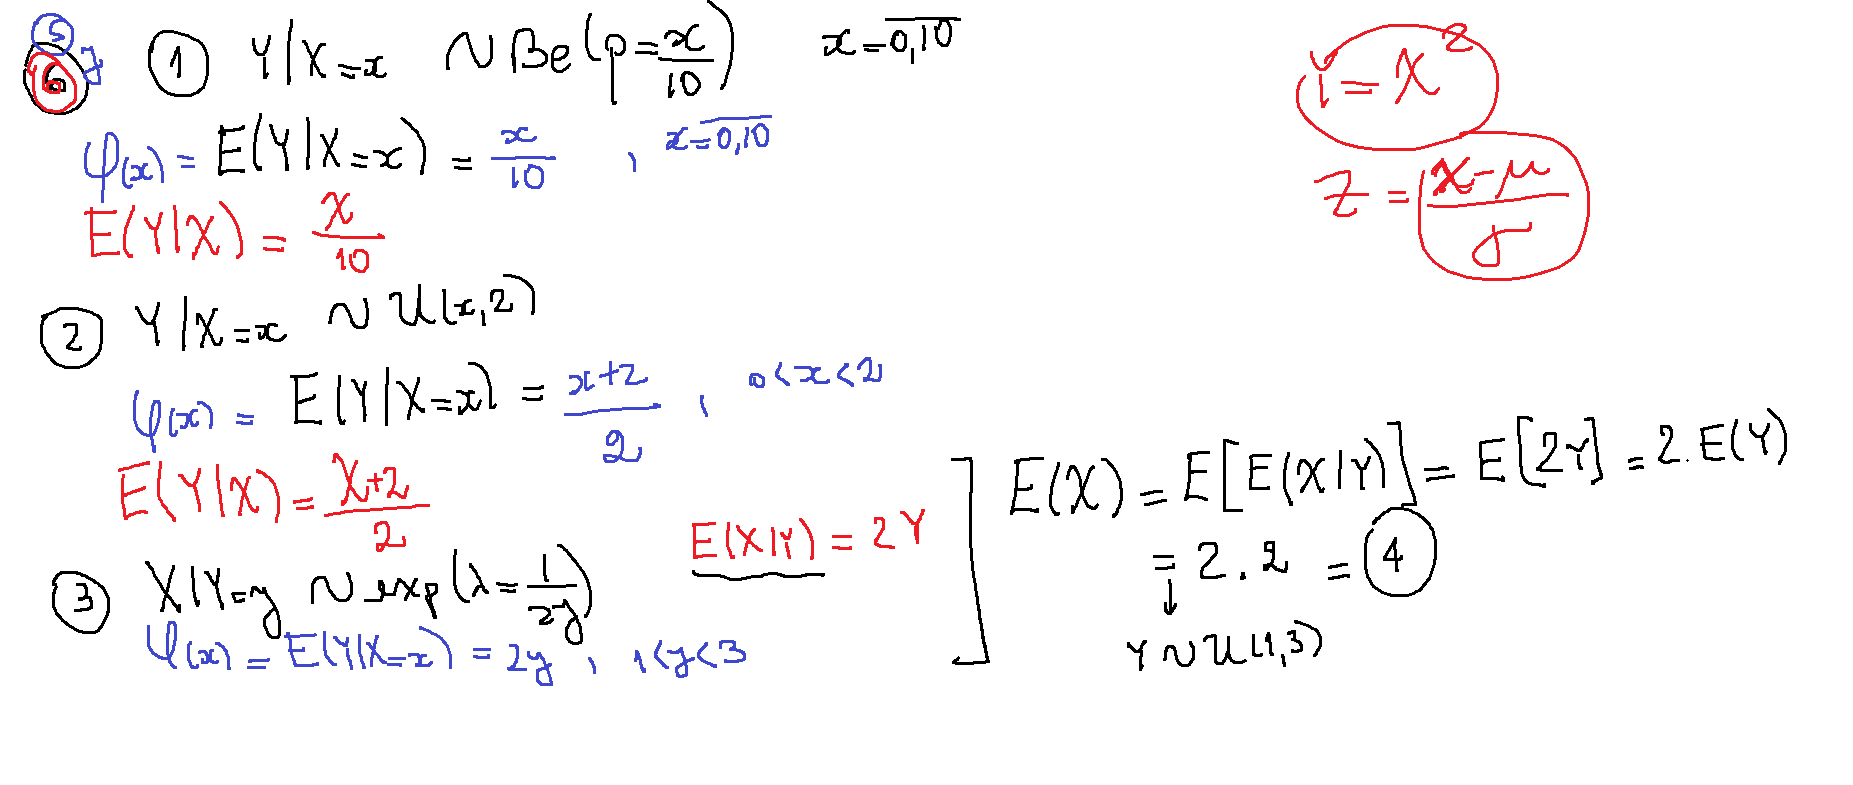 5
6 7
① Y|X=x ~ Be(p=x/10) x=0,10
φ(x) = E(Y|X=x) = x/10 , x=0,10
E(Y|X) = X/10
Y=X²
Z = (X-μ)/σ
② Y|X=x ~ U(x,2)
φ(x) = E(Y|X=x) = (x+2)/2 , 0<x<2
E(Y|X) = (X+2)/2
③ X|Y=y ~ exp(λ=1/2y)
E(X|Y) = 2Y
φ(x) = E(Y|X=x) = 2y , 1<y<3
E(X) = E[E(X|Y)] = E[2Y] = 2.E(Y)
= 2.2 = 4
↓
Y~U(1,3)